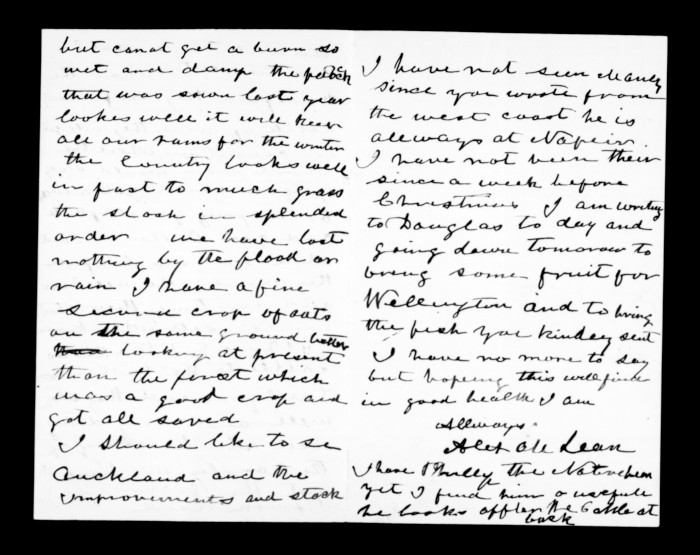 but canot get a burn so
wet and damp the patch
that was sown last year
lookes well it will keep
all our rams for the winter
the Country looks well
in fact to much grass
the stock in splended
order we have lost
nothing by the flood or
rain I have a fine
second crop of oats
on the same ground better
looking at present
than the first which
was a good crop and
got all saved
I should like to se
Auckland and the
improvements and stock
I have not seen
since you wrote from
the west coast he is
allways at Napeir
I have not been their
since a week before
Christmas I am writing
to Douglas to day and
going down tomorow to
bring some fruit for
Wellington and to bring
the fish you kindley sent
I have no more to say
but hopeing this will find
in good health I am
Allways
Alex Mc Lean
I have the Native
yet I find him a usefull
he looks after the Cattle at
back